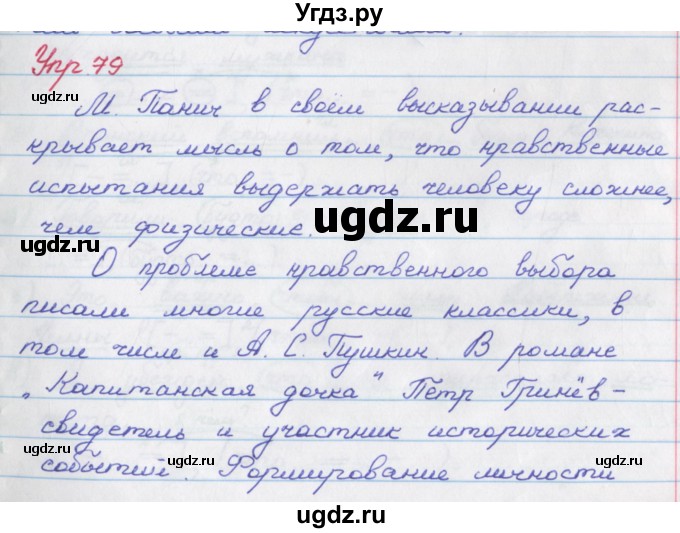 Угдз.ру
Упр 79
М. Панич в своём высказывании рас-
крывает мысль о том, что нравственные
испытания выдержать человеку сложнее,
чем физические.
О проблеме нравственного выбора
писали многие русские классики, в
том числе и А. С. Пушкин. В романе
„Капитанская дочка" Пётр Гринёв-
свидетель и участник исторических
событий. Формирование личности
ugdz.ru
ugdz.ru
ugdz.ru
ugdz.ru
ugdz.ru
ugdz.ru
ugdz.ru
ugdz.ru
ugdz.ru
ugdz.ru